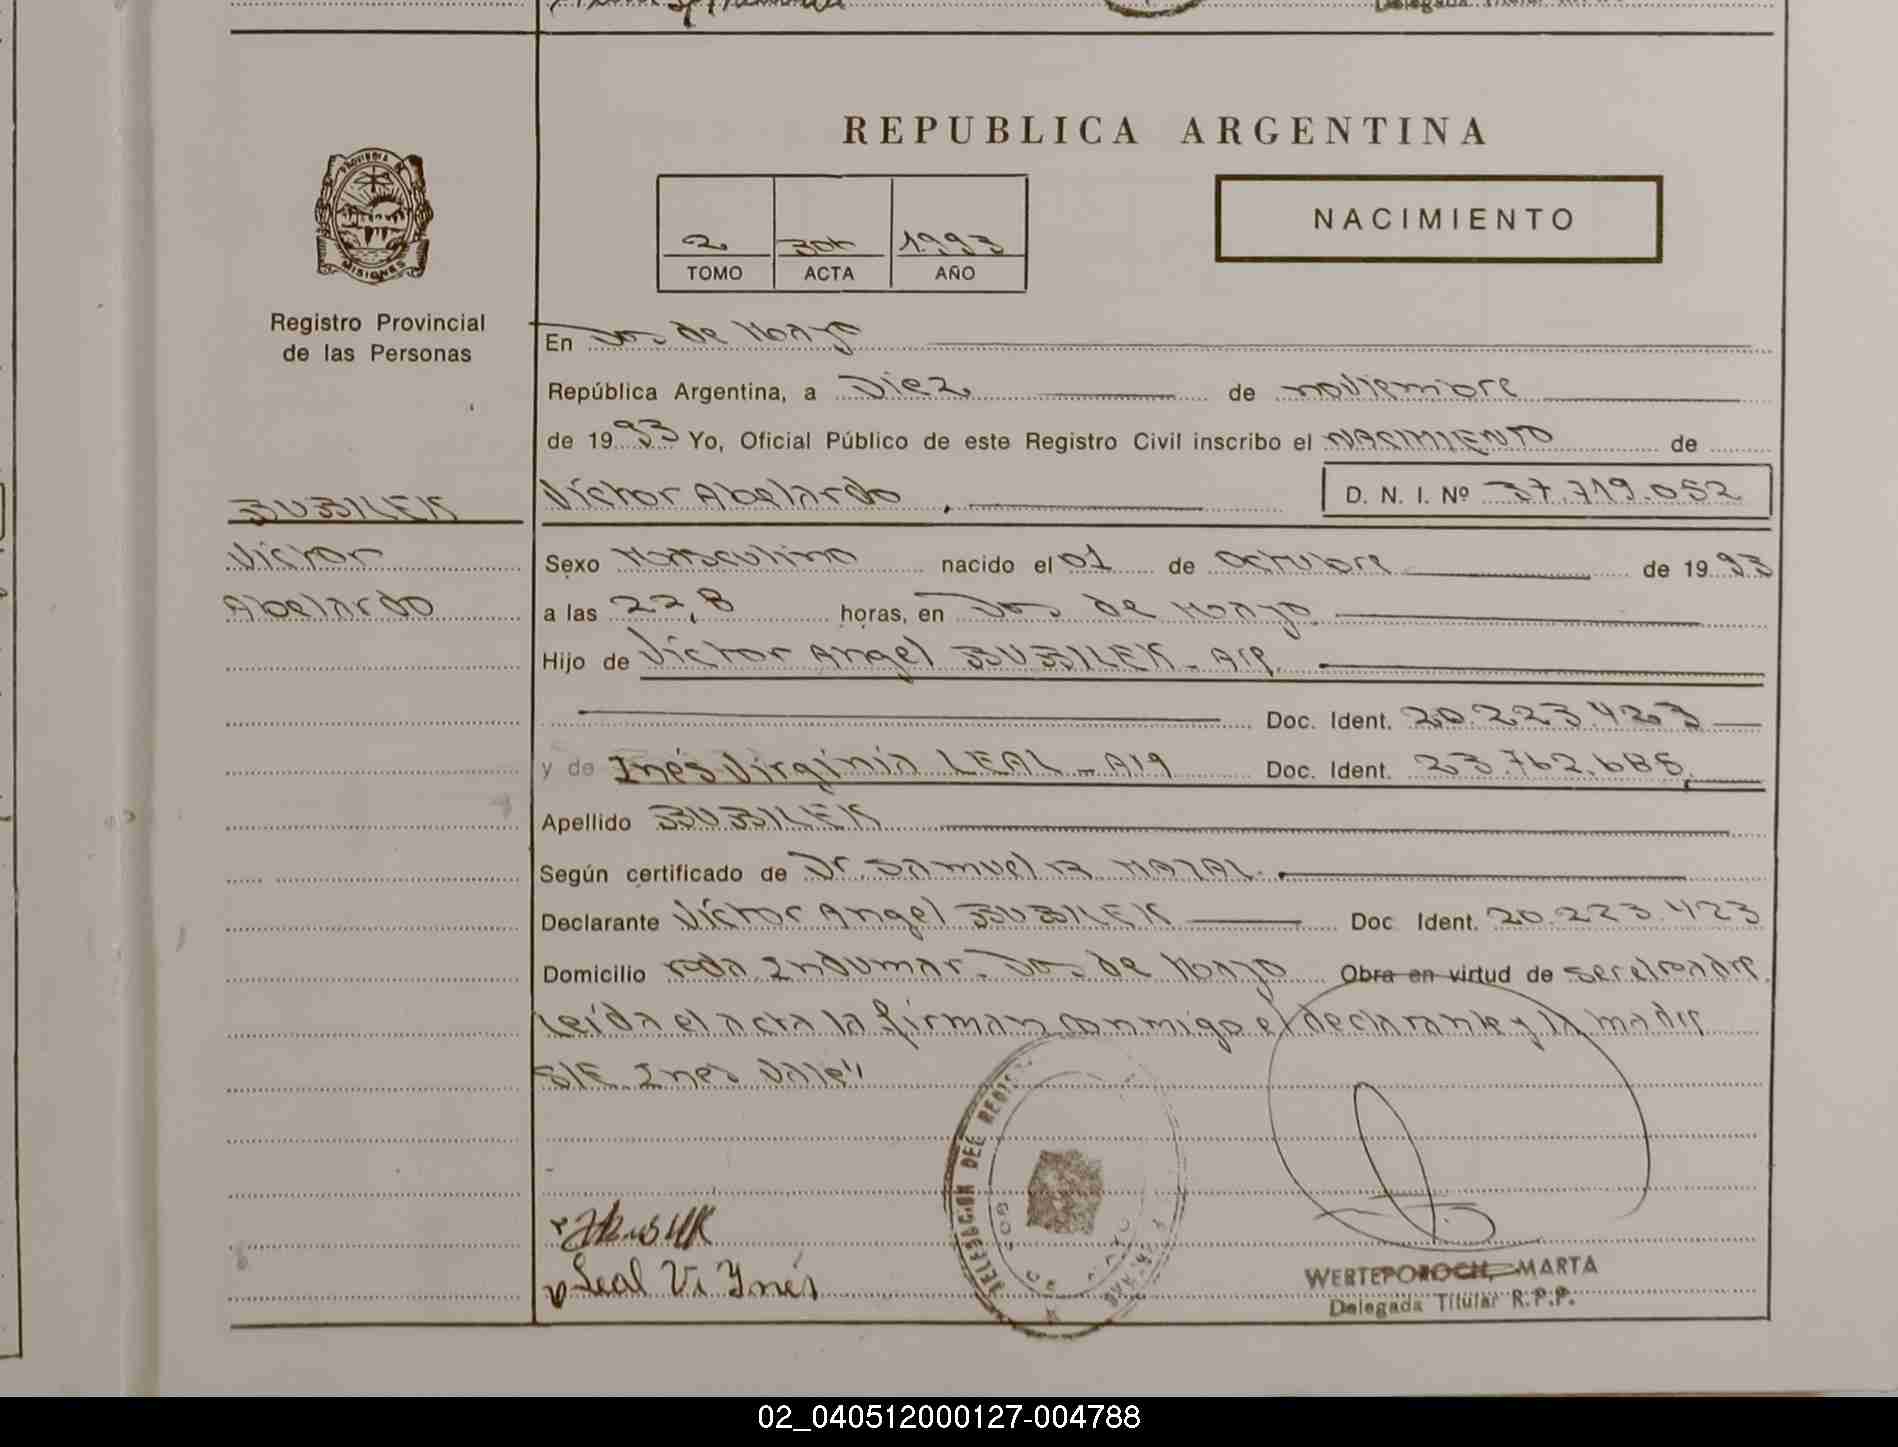 REPUBLICA ARGENTINA
NACIMIENTO
2 1993
TOMO ACTA AÑO
PROVINCIA DE MISIONES
Registro Provincial
de las Personas
En Dos de Mayo
República Argentina, a Diez de noviembre
de 1993 Yo, Oficial Público de este Registro Civil inscribo el NACIMIENTO de
Víctor Abelardo, D. N. I. Nº 37.719.052
Víctor
Abelardo
Sexo Masculino nacido el 01 de octubre de 1993
a las 22,8 horas, en Dos de Mayo
Hijo de Víctor Angel
Doc. Ident. 20.223.423
y de Inés Virginia LEAL Doc. Ident.
Apellido
Según certificado de Dr. Samuel
Declarante Víctor Angel Doc. Ident. 20.223.423
Domicilio Dos de Mayo Obra en virtud de ser el padre
Leída el acta la firman conmigo el declarante y la madre
Inés Vale"
DELEGACION DEL
Leal Vi Ynés
WERTEPOROCH, MARTA
Delegada Titular R.P.P.
02_040512000127-004788